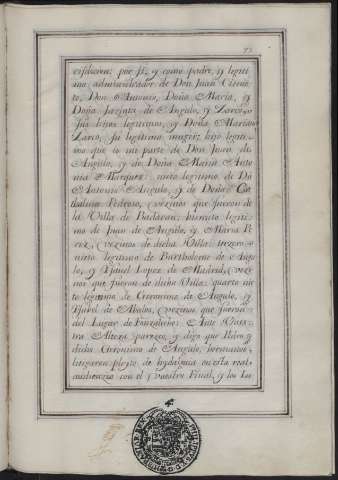 por sí, y como padre, y legiti
mo administrador de Don Juan Vicen
te, Don Antonio, Doña Maria, y
Doña Jazinta de Angulo, y Zarco,
sus hijos legitimos, y Doña Mariana
Zarco, su legitima muger; hijo legiti
mo que lo mi parte de Don Juan de
Angulo, y de Doña Maria Anto
nia Marquez: nieto legitimo de Dn
Antonio Angulo, y de Doña Ca
thalina Pedroso, vezinos que fueron de
la Villa de Badaran: bisnieto legiti
mo de Juan de Angulo, y Maria Pe
rez, vezinos de dicha Villa: terzero
nieto legitimo de Bartholome de Angu
lo, y Ysabel Lopez de Madrid, vezi
nos que fueron de dicha Villa: quarto nie
to legitimo de Geronimo de Angulo, y
Ysabel de Abalos, vezinos que fueron
del Lugar de : Ante Vues
tra Alteza parezco, y digo que Pedro, y
dicho Geronimo de Angulo, hermanos,
litigaron pleyto de hydalguia en esta real
audiencia con el vuestro Fiscal, y los